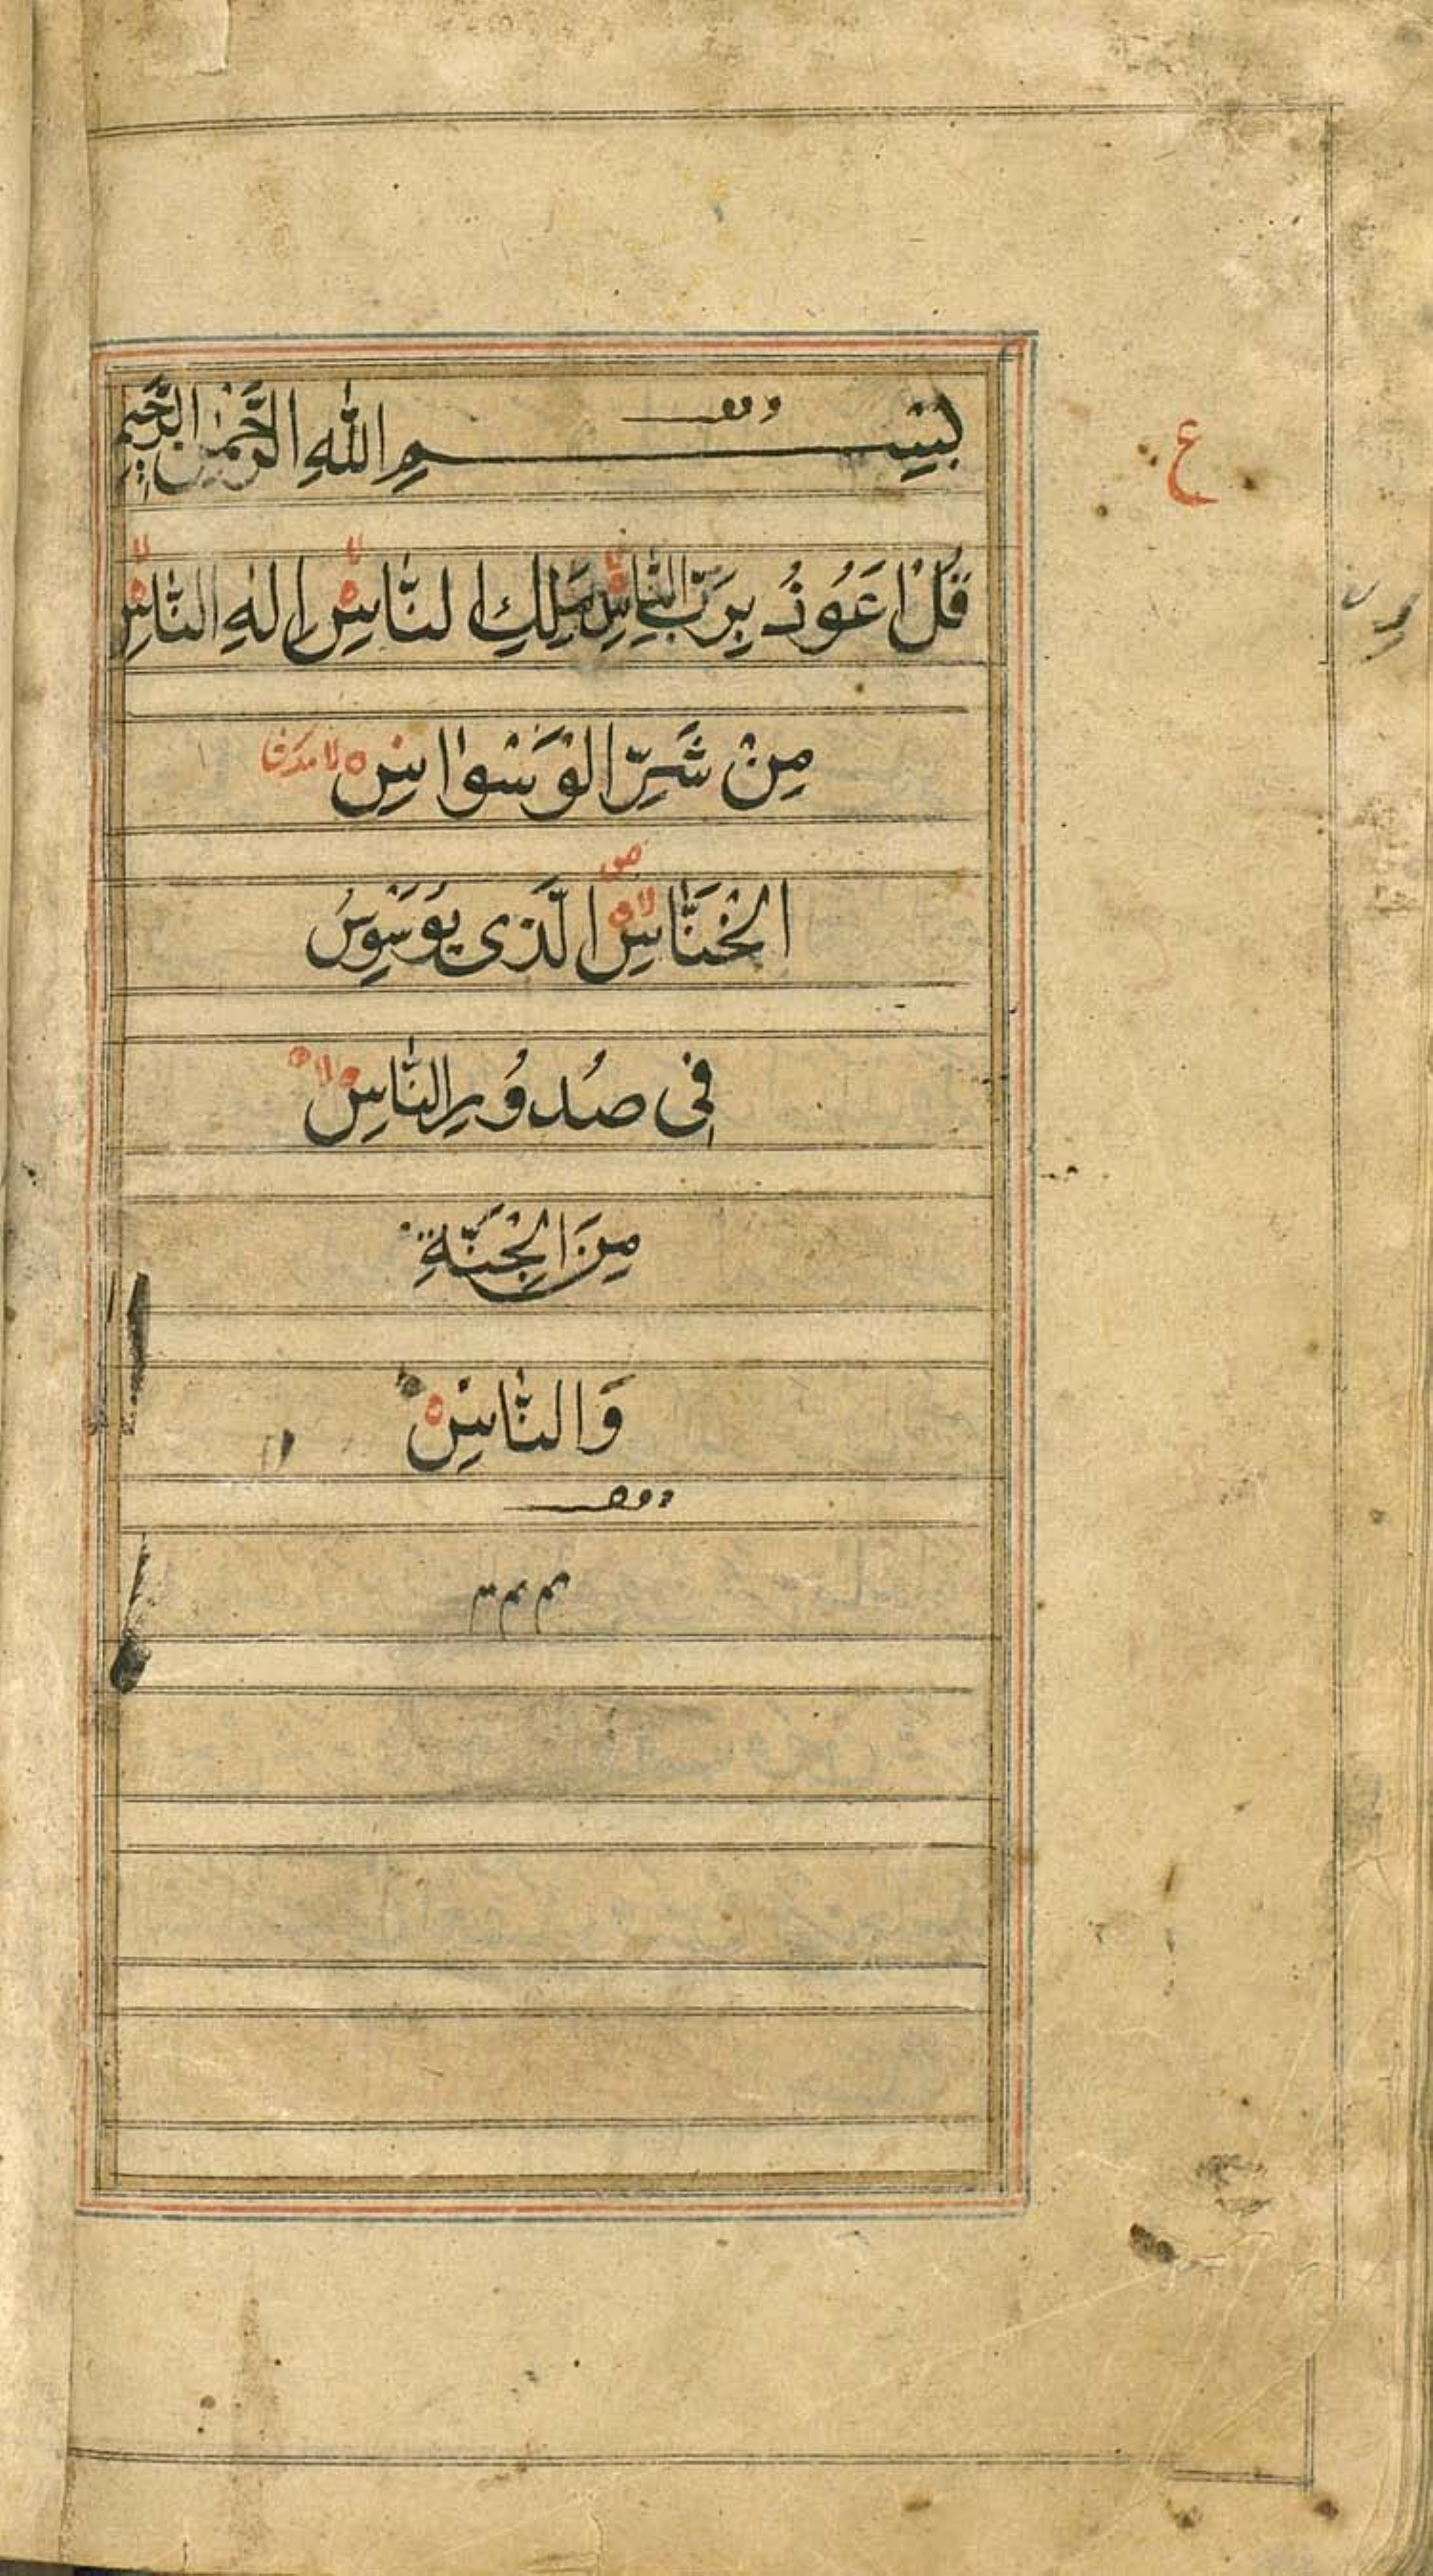 بِسْمِ اللّٰهِ الرَّحْمٰنِ الرَّحِيْمِ
ع
قُلْ اَعُوْذُ بِرَبِّ النَّاسِ مَلِكِ النَّاسِ اِلٰهِ النَّاسِ
مِنْ شَرِّ الْوَسْوَاسِ
الْخَنَّاسِ الَّذِى يُوَسْوِسُ
فِى صُدُوْرِ النَّاسِ
مِنَ الْجِنَّةِ
وَالنَّاسِ